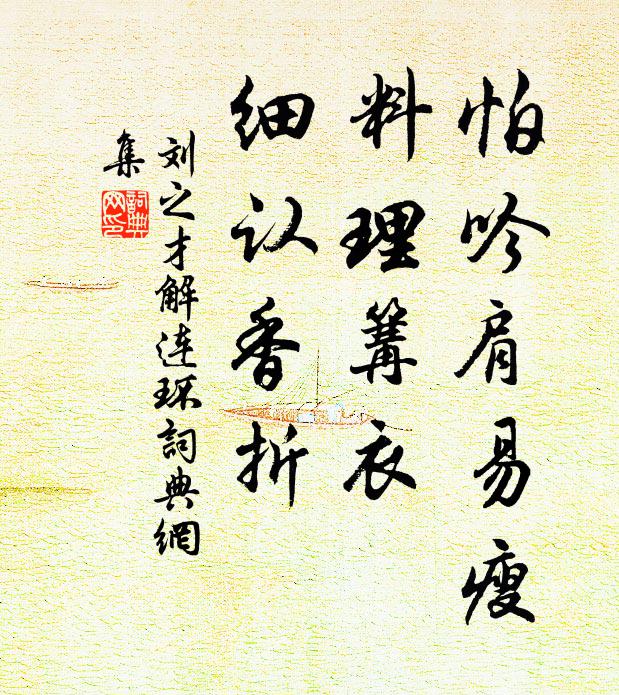 怕吟肩易瘦
料理篝衣
细认香折
刘之才解连环詞典網
集
詞典网印